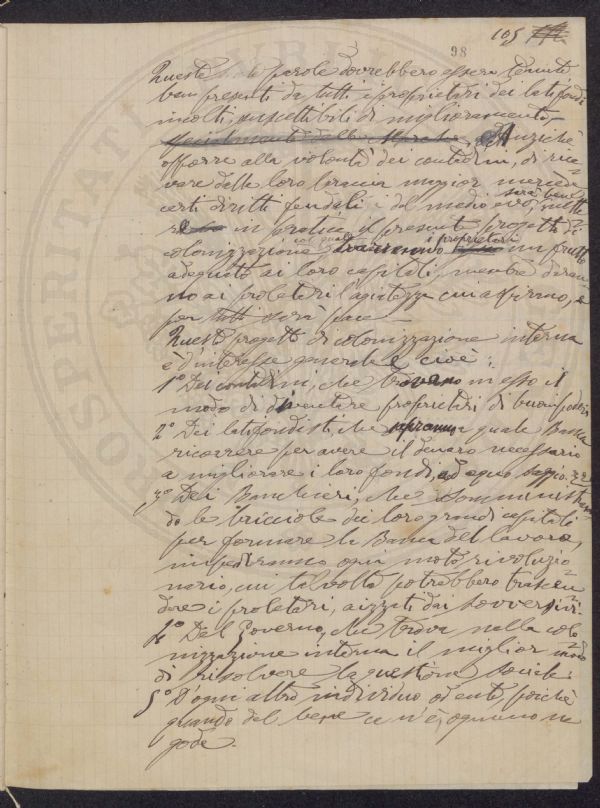 105
98
Queste parole dovrebbero essere tenute
ben presenti da tutti i proprietari dei latifondi
incolti, suscettibili di miglioramento.
Anzichè
offrire alla volontà dei contadini, di rice-
vere delle loro braccia maggior mercede
certi diritti feudali del medio evo, sarà bene mette
re in pratica il presente progetto di
colonizzazione col quale i proprietari un frutto
adeguato ai loro capitali, mentre daran-
no ai proletari l'agiatezza cui aspirano, e
per tutti sarà pace.
Questo progetto di colonizzazione interna
è d'interesse generale e cioè:
1º Dei contadini, che trovano in esso il
modo di diventare proprietari di buon podere
2º Dei latifondisti, che sapranno a quale Banca
ricorrere per avere il denaro necessario
a migliorare i loro fondi, ad equo saggio
3º Dei Banchieri, che somministran
do le bricciole dei loro grandi capitali
per formare la Banca del lavoro,
impediranno ogni moto rivoluzio
nario, cui talvolta potrebbero trascen
dere i proletari, aizzati dai sovversivi.
4º Del Governo, che trova nella colo
nizzazione interna il miglior modo
di risolvere la questione sociale.
5º D'ogni altro individuo od ente, poichè
quando del bene ce n'è, ognuno ne
gode.